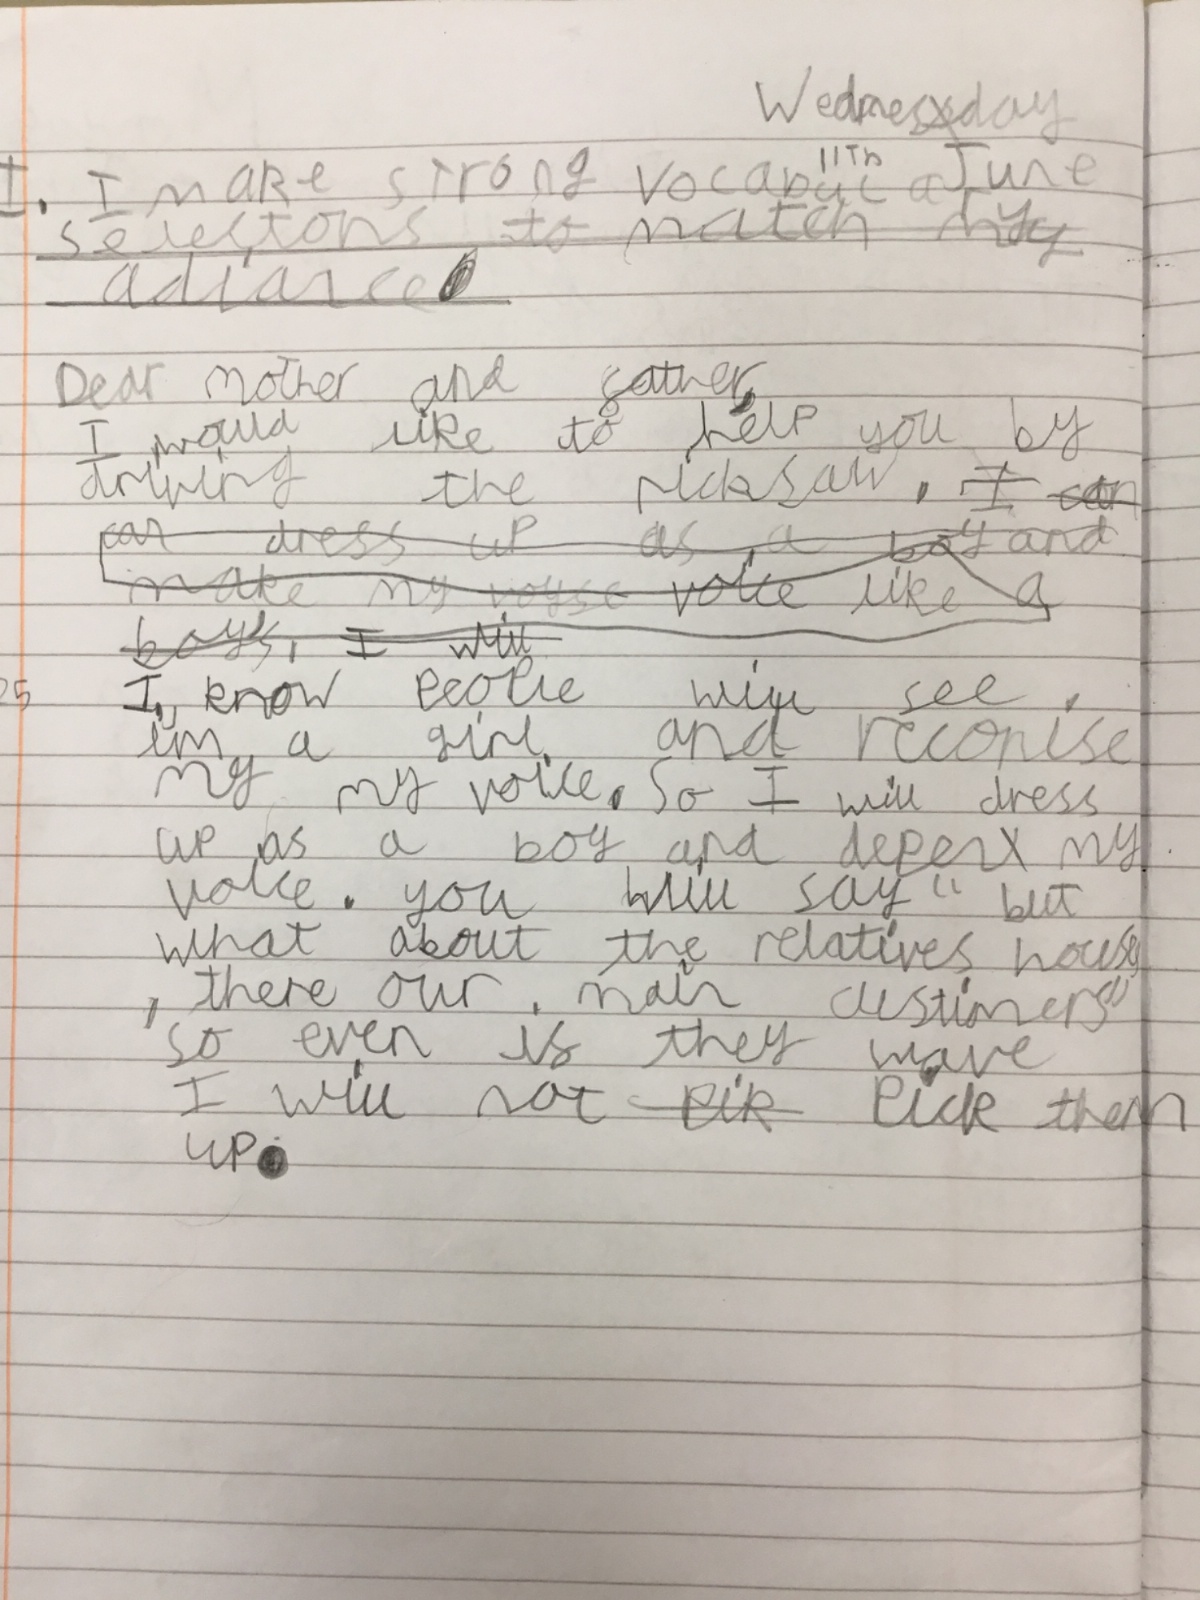 Wednesday
11Th June
I. I make strong vocabulc a
selectons to match my
adiance
Dear mother and father,
I would like to help you by
driving the ricksaw. I can
can dress up as a boy and
make my voyse voice like a
boys, I will
25 I, know people will see,
im a girl, and reconise
my my voice. So I will dress
up as a boy and depen my
voice. you will say " but
what about the relatives house
, there our main custimers"
so even is they wave
I will not pik pick them
up.